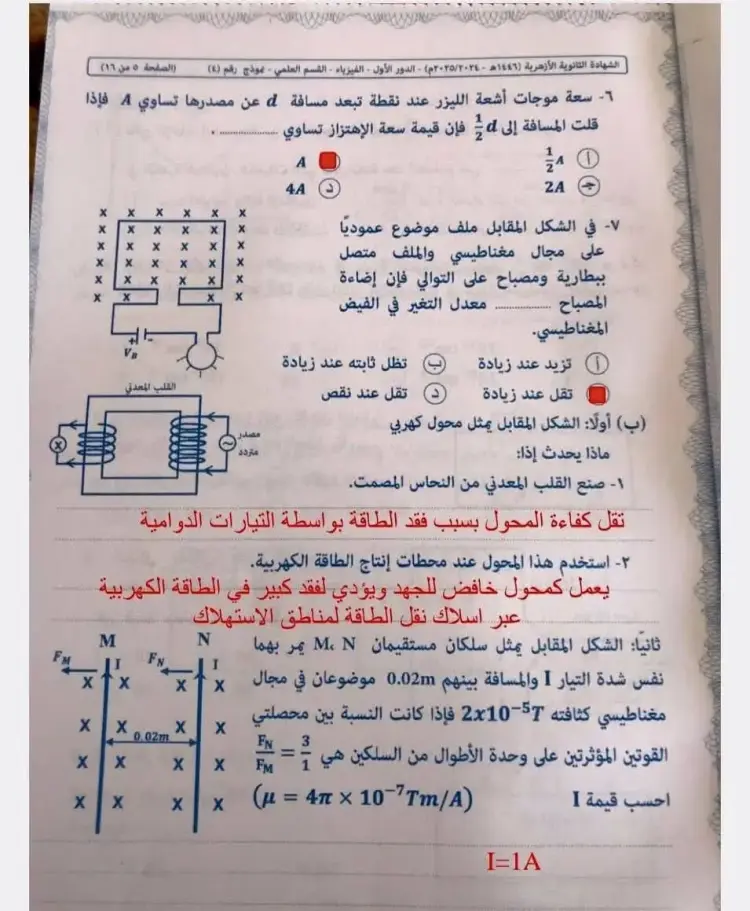 الشهادة الثانوية الأزهرية (١٤٤٦هـ - ٢٠٢٥/٢٠٢٤م) - الدور الأول - الفيزياء - القسم العلمي - نموذج رقم (٤) (الصفحة ٥ من ١٦)
٦- سعة موجات أشعة الليزر عند نقطة تبعد مسافة d عن مصدرها تساوي A فإذا
قلت المسافة إلى ½d فإن قيمة سعة الإهتزاز تساوي .................. .
أ ½A
A
ج 2A
د 4A
٧- في الشكل المقابل ملف موضوع عموديًا
على مجال مغناطيسي والملف متصل
ببطارية ومصباح على التوالي فإن إضاءة
المصباح .................. معدل التغير في الفيض
المغناطيسي.
x x x x x x
x x x x x x
x x x x x x
x x x x x x
x x x x x x
x x x x
+ -
V_B
أ تزيد عند زيادة ب تظل ثابته عند زيادة
تقل عند زيادة د تقل عند نقص
القلب المعدني
مصدر
متردد
(ب) أولًا: الشكل المقابل يمثل محول كهربي
ماذا يحدث إذا:
١- صنع القلب المعدني من النحاس المصمت.
تقل كفاءة المحول بسبب فقد الطاقة بواسطة التيارات الدوامية
٢- استخدم هذا المحول عند محطات إنتاج الطاقة الكهربية.
يعمل كمحول خافض للجهد ويؤدي لفقد كبير في الطاقة الكهربية
عبر اسلاك نقل الطاقة لمناطق الاستهلاك
ثانيًا: الشكل المقابل يمثل سلكان مستقيمان M، N يمر بهما
نفس شدة التيار I والمسافة بينهم 0.02m موضوعان في مجال
مغناطيسي كثافته 2x10⁻⁵T فإذا كانت النسبة بين محصلتي
القوتين المؤثرتين على وحدة الأطوال من السلكين هي F_N/F_M = 3/1
احسب قيمة I (μ = 4π × 10⁻⁷Tm/A)
M N
F_M I F_N I
X X X X
X X X X
0.02m
X X X X
X X X X
I=1A